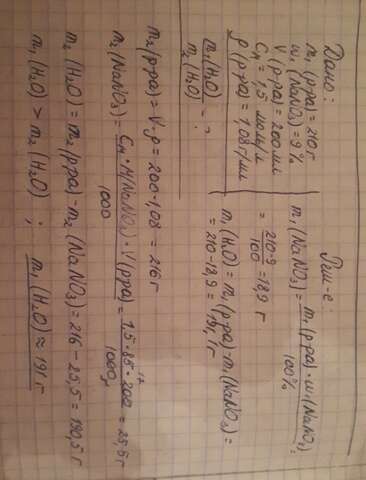 Дано:
m₁ (р-ра) = 210г
ω₁ (NaNO₃) = 9%
V (р-ра) = 200 мл
Cм = 1,5 моль/л
ρ (р-ра) = 1,08 г/мл
m₁(H₂O) - ?
m₂(H₂O)
Реш-е:
m₁(NaNO₃) = m₁(р-ра)·ω₁(NaNO₃) / 100% =
= 210·9 / 100 = 18,9 г
m₁(H₂O) = m₁(р-ра) - m₁(NaNO₃) =
= 210 - 18,9 = 191,1г
m₂(р-ра) = V·ρ = 200·1,08 = 216г
m₂(NaNO₃) = Cм·M(NaNO₃)·V(р-ра) / 1000 = 1,5·85·200 / 1000 = 25,5г
m₂(H₂O) = m₂(р-ра) - m₂(NaNO₃) = 216 - 25,5 = 190,5г
m₁(H₂O) > m₂(H₂O) ; m₁(H₂O) ≈ 191г